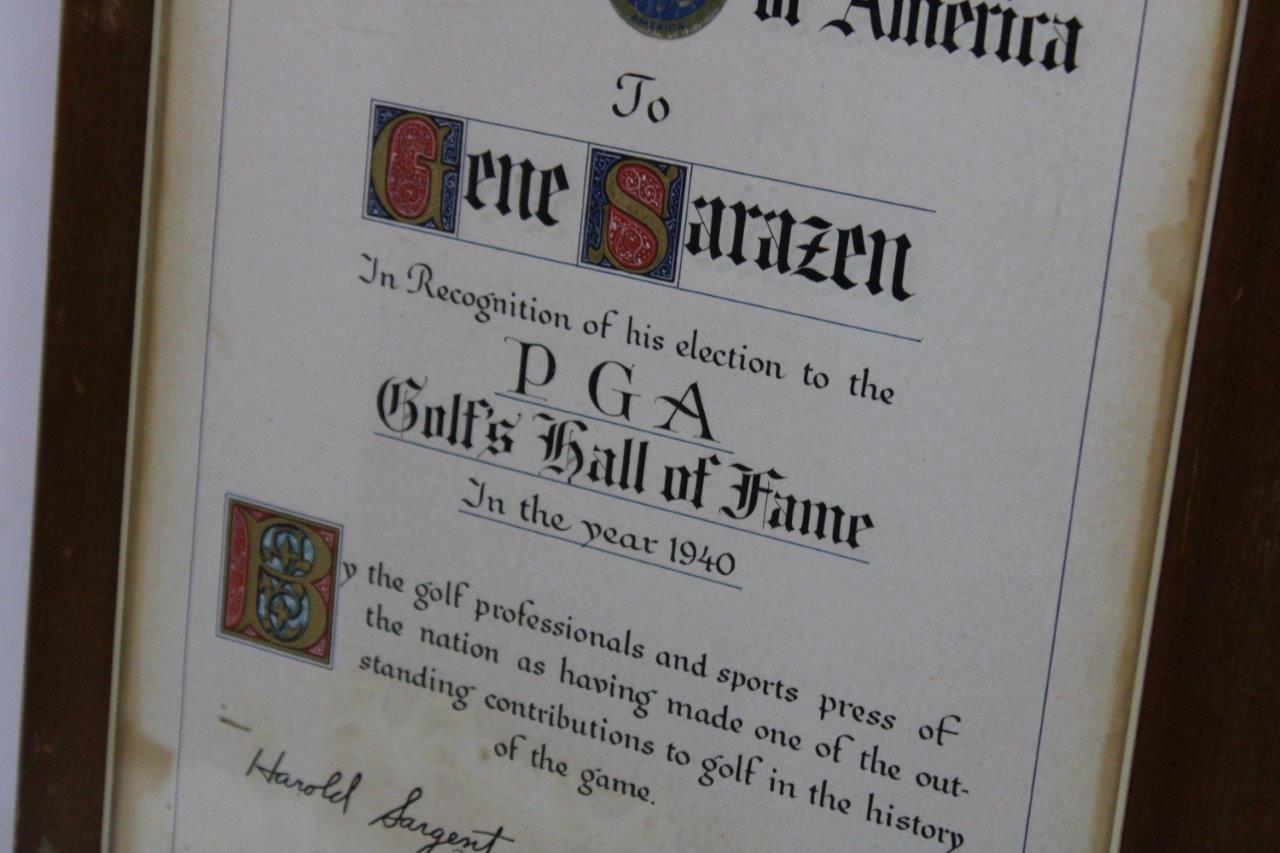 AMERICA
of America
To
Gene Sarazen
In Recognition of his election to the
PGA
Golf's Hall of Fame
In the year 1940
By the golf professionals and sports press of
the nation as having made one of the out-
standing contributions to golf in the history
of the game.
Harold Sargent